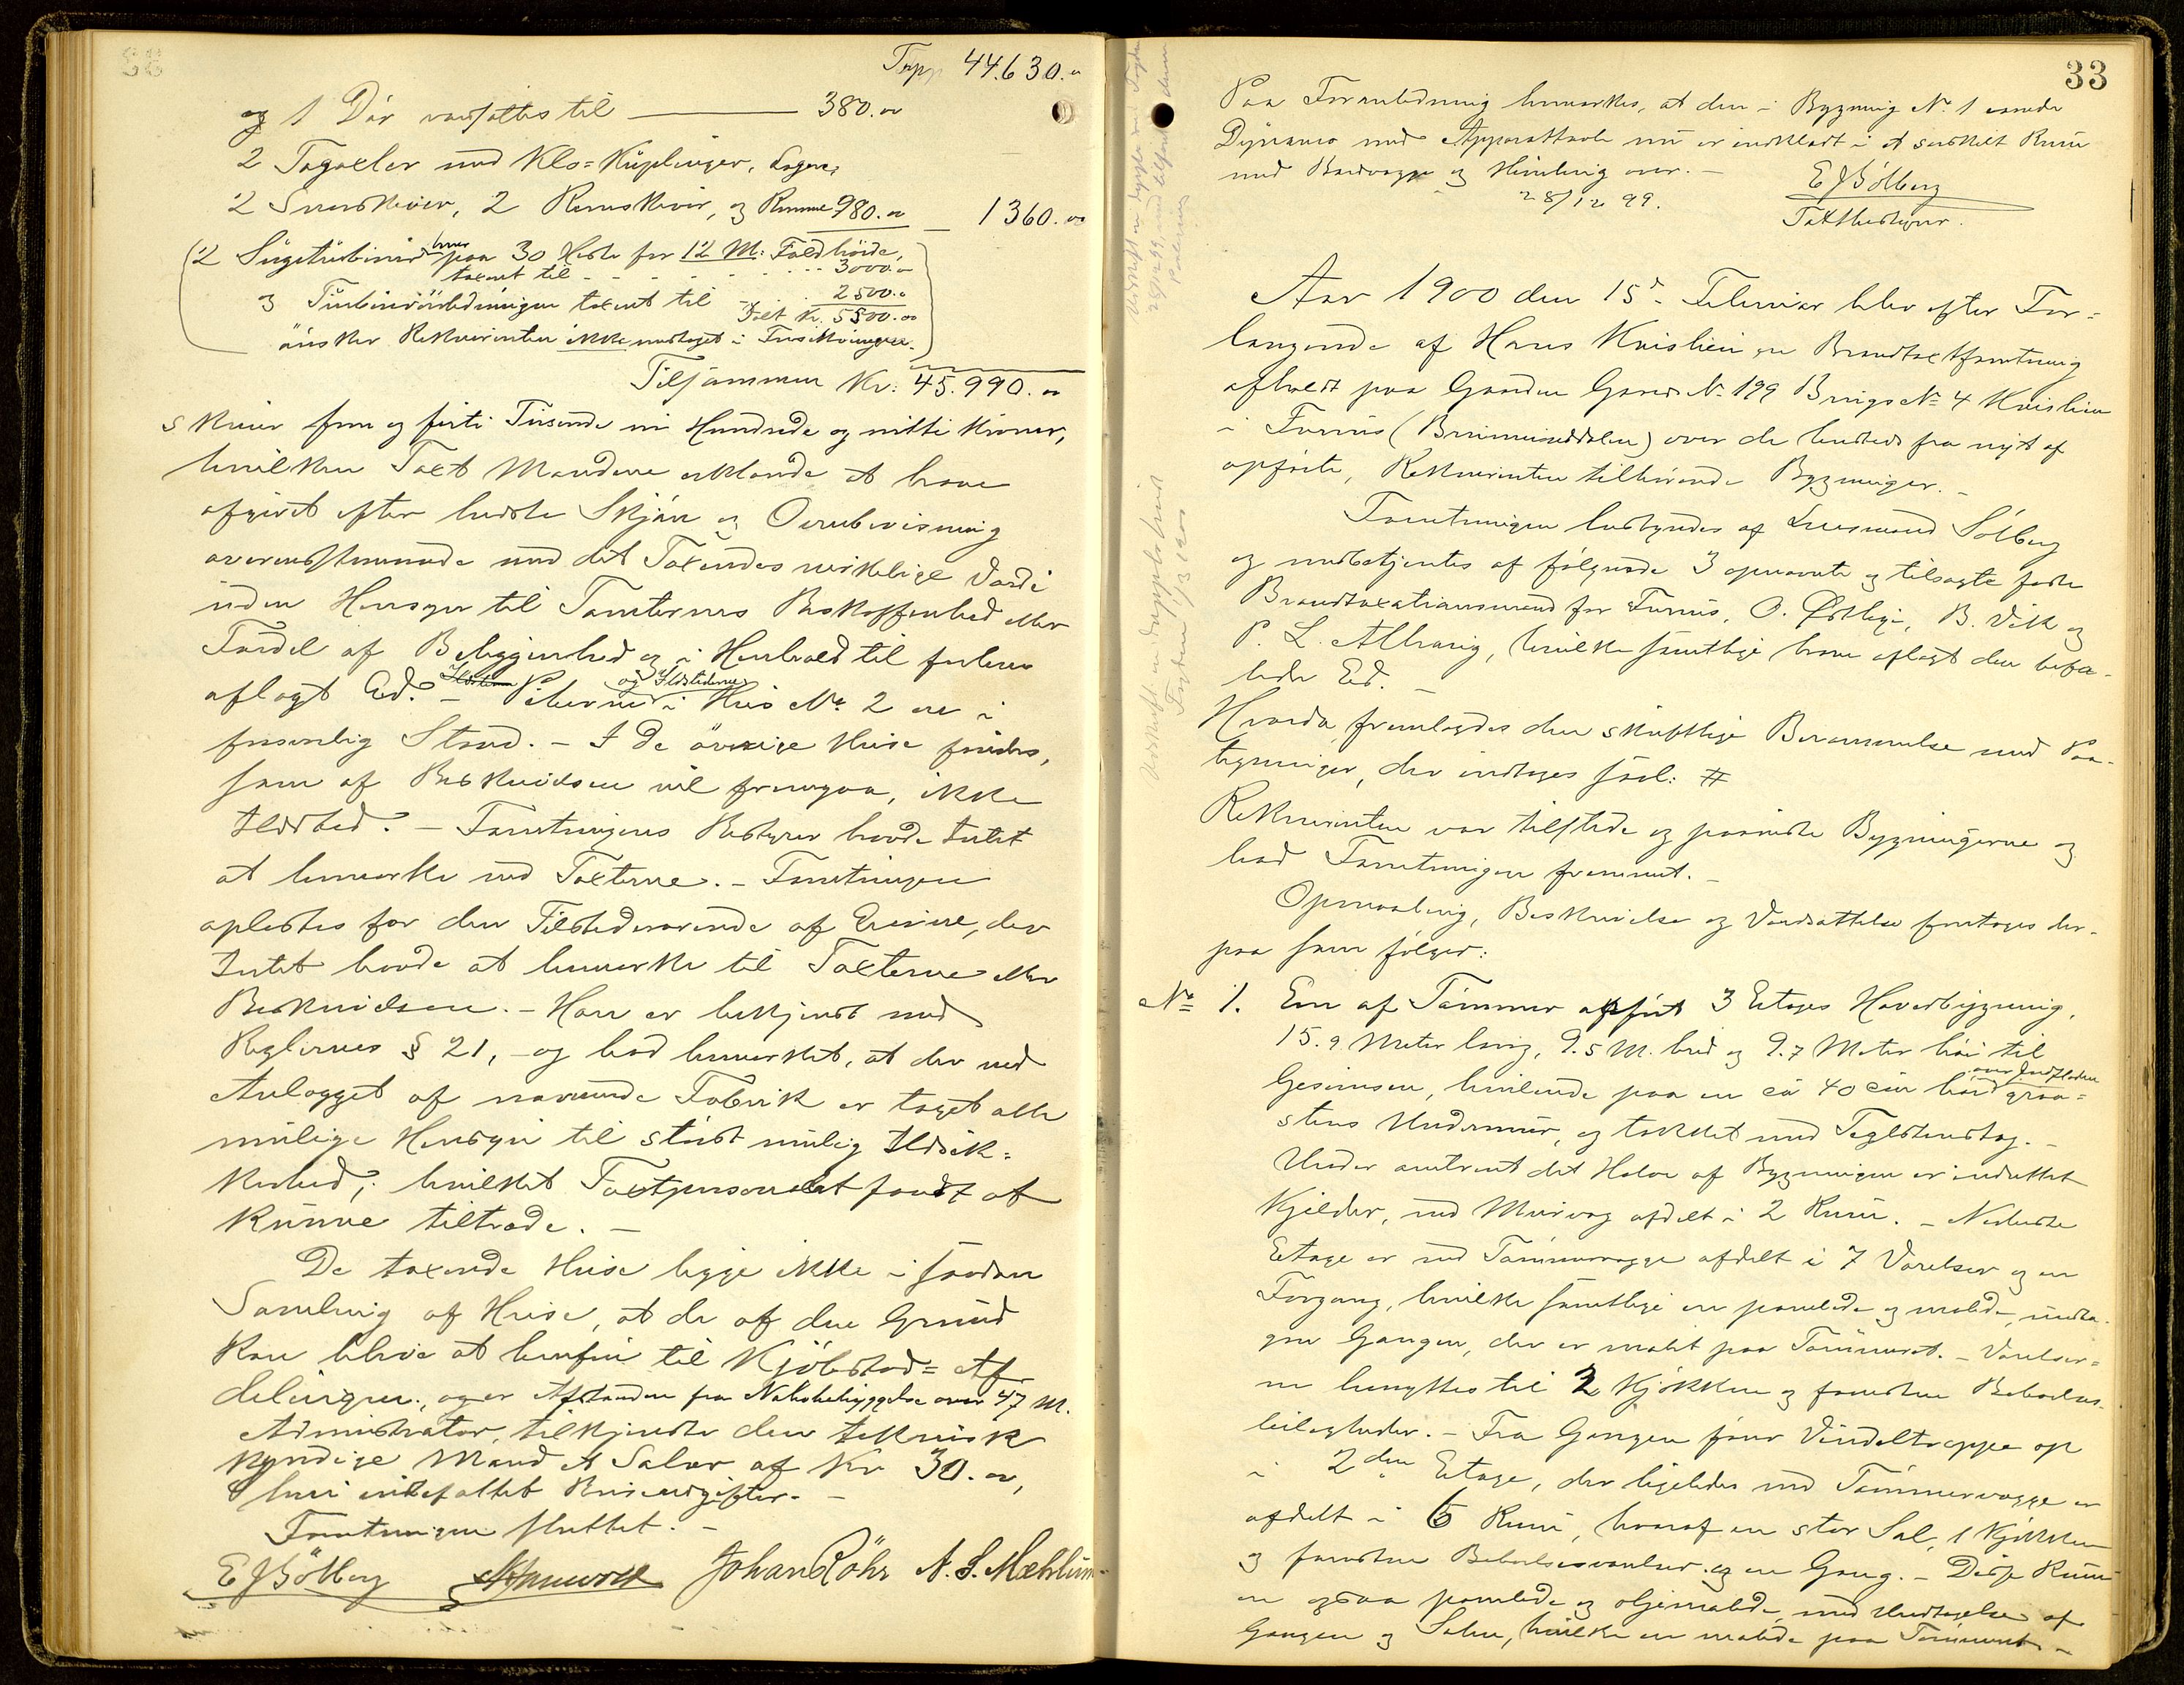 Trpp 44.630.00
og 1 Dör værdsattes til ——— 380.00
2 Tagaxler med Klo-Kuplinger, Lagere,
2 Snorskiver, 2 Remskiver, og Remme 980.00 — 1360.00
(2 Sugeturbiner hver paa 30 Heste for 12 M: Faldhöide,
taxeret til - - - - - 3000.00
og Turbinrörledningen taxeret til - - 2500.00
Ialt Kr. 5500.00
önsker Rekvirenten ikke medtaget i Forsikringen.)
Tilsammen Kr: 45.990.00
skriver fem og firti Tusende ni Hundrede og nitti Kroner,
hvilken Taxt Mændene erklærede at have
afgivet efter bedste Skjön og Overbevisning
overensstemmende med det Taxeredes virkelige Værdi
uden Hensyn til Tomternes Beskaffenhed eller
Fordel af Beliggenhed og i Henhold til forhen
aflagt Ed. – Piberne og Ildstederne i Hus No. 2 ere i
forsvarlig Stand. – I de övrige Huse findes,
som af Beskrivelsen vil fremgaa, ikke
Ildsted. – Forretningens Bestyrer havde Intet
at bemærke ved Taxterne. – Forretningen
oplæstes for den Tilstedeværende af Eierne, der
Intet havde at bemærke til Taxterne eller
Beskrivelsen. – Han er bekjendt med
Reglernes § 21, – og bad bemærket, at der ved
Anlægget af nærværende Fabrik er taget alle
mulige Hensyn til störst mulig Ildsik-
kerhed; hvilket Taxtpersonalet fandt at
kunne tiltræde. –
De taxerede Huse ligge ikke i saadan
Samling af Huse, at de af den Grund
kan blive at henföre til Kjöbstad-Af-
delingen, og er Afstanden fra Nabobebyggelse over 47 M.
Administrator, tilkjendte den teknisk
kyndige Mand et Salær af Kr 30.00,
heri indbefattet Reiseudgifter. –
Forretningen sluttet. –
E Sölberg Johan Röhr N. S. Mæhlum
33
Paa Foranledning bemærkes, at den i Bygning No. 1 værende
Dynamo med Apparattavle nu er indklædt i et særskilt Rum
med Bordvægge og Himling over. –
28/12 99.
E Sölberg
Taxtbestyrer.
Aar 1900 den 15de Februar blev efter For-
langende af Hans Kvislien en Brandtaxtforretning
afholdt paa Gaarden Gaards No. 199 Brugs No. 4 Kvislien
i Furnes (Brumunddalen) over de hersteds fra nyt af
opförte, Rekvirenten tilhörende Bygninger. –
Forretningen bestyredes af Lensmand Sölberg
og medbetjentes af fölgende 3 opnævnte og tilsagte faste
Brandtaxationsmænd for Furnes, O. Östlege, B. Vik og
P. L. Alhaug, hvilke samtlige have aflagt den befa-
lede Ed. –
Hvorda fremlagdes den skriftlige Berammelse med Paa-
tegninger, der indtages saal: #
Rekvirenten var tilstede og paaviste Bygningerne og
bad Forretningen fremmet. –
Opmaaling, Beskrivelse og Værdsættelse foretoges der-
paa som fölger:
No 1. En af Tömmer opfört 3 Etages Hovedbygning,
15.9 Meter lang, 9.5 M. bred og 9.7 Meter höi til
Gesimsen, hvilende paa en ca 40 cm höi over Jordfladen graa-
stens Undermur, og tækket med Teglstenstag. –
Under omtrent det Halve af Bygningen er indrettet
Kjelder, ved Murvæg afdelt i 2 Rum. – Nederste
Etage er ved Tömmervægge afdelt i 7 Værelser og en
Forgang, hvilke samtlige er panelede og malede, undta-
gen Gangen, der er malet paa Tömmeret. – Værelser-
ne benyttes til 2 Kjökken og forövrigt Beboelses-
leiligheder. – Fra Gangen förer Vindeltrappe op
i 2den Etage, der ligeledes ved Tömmervægge er
afdelt i 6 Rum, hvoraf en stor Sal, 1 Kjökken
og forövrigt Beboelsesværelser og en Gang. – Disse Rum
er ogsaa panelede og oljemalede, med Undtagelse af
Gangen og Salen, hvilke er malede paa Tömmeret –